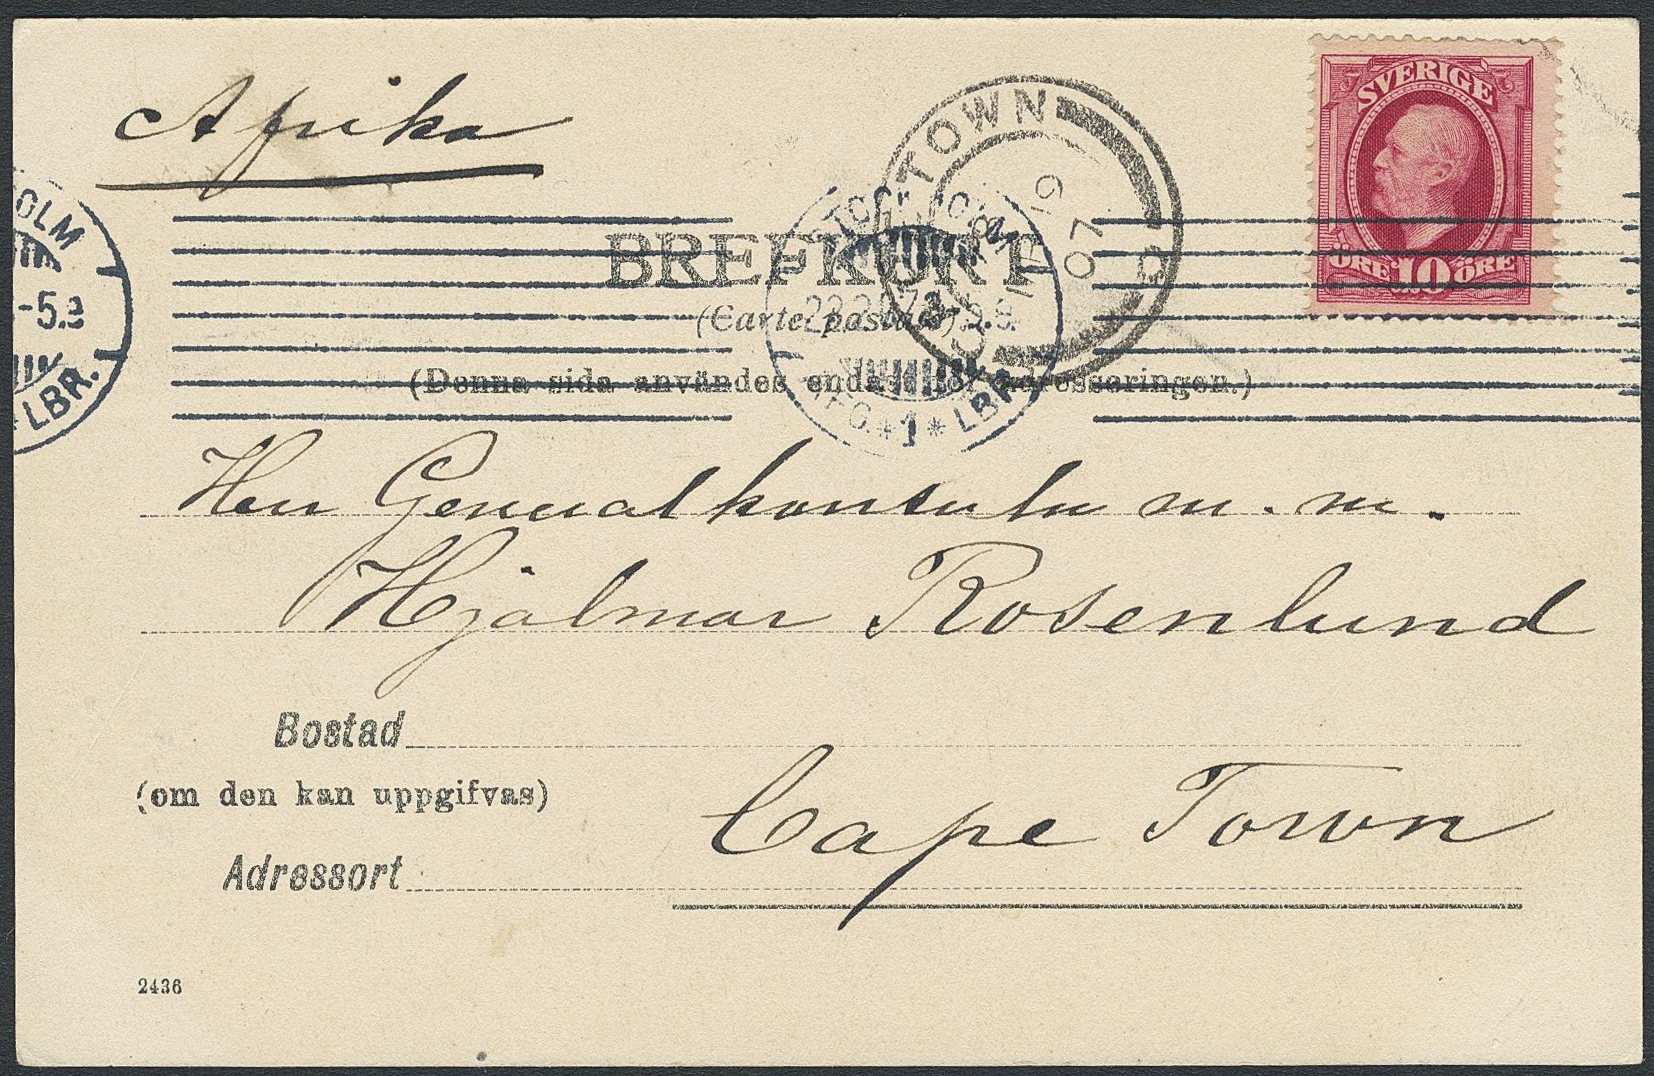 Afrika
SVERIGE
ÖRE 10 ÖRE
TOWN
19
07
OLM
-5.
LBR.
BREFKORT
(Carte postale)
(Denna sida användes endast för adresseringen.)
*1* LBR.
Herr Generalkonsuln m. m.
Hjalmar Rosenlund
Bostad
(om den kan uppgifvas)
Cape Town
Adressort
2436